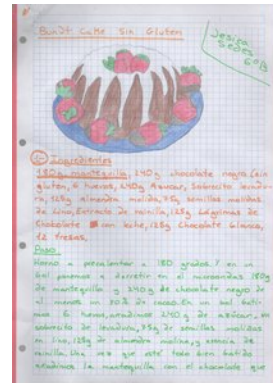 Bundt Cake Sin Gluten
Jesica
6ºB
Ingredientes
180g mantequilla, 240g chocolate negro (sin
gluten, 6 huevos, 240g Azucar, Sobrecito levadu
ra, 125g almendra molida, 75g semillas molidas
de Lino, Extracto de vainilla, 125g Lágrimas de
Chokolate con leche, 125g Chocolate blanco,
12 fresas,
Paso.
Horno a precalentar a 180 grados. Y en un
bol ponemos a derretir en el microondas 180g
de mantequilla y 240g de chocolate negro de
al menos un 70% de cacao. En un bol batir
mos 6 huevos, añadimos 240g de azúcar, un
sobrecito de levadura, 75g de semillas molidas
en lino, 125g de almendra molina, y esencia de
vainilla. Una vez que esté todo bien batido
añadimos la mantequilla con el chocolate que